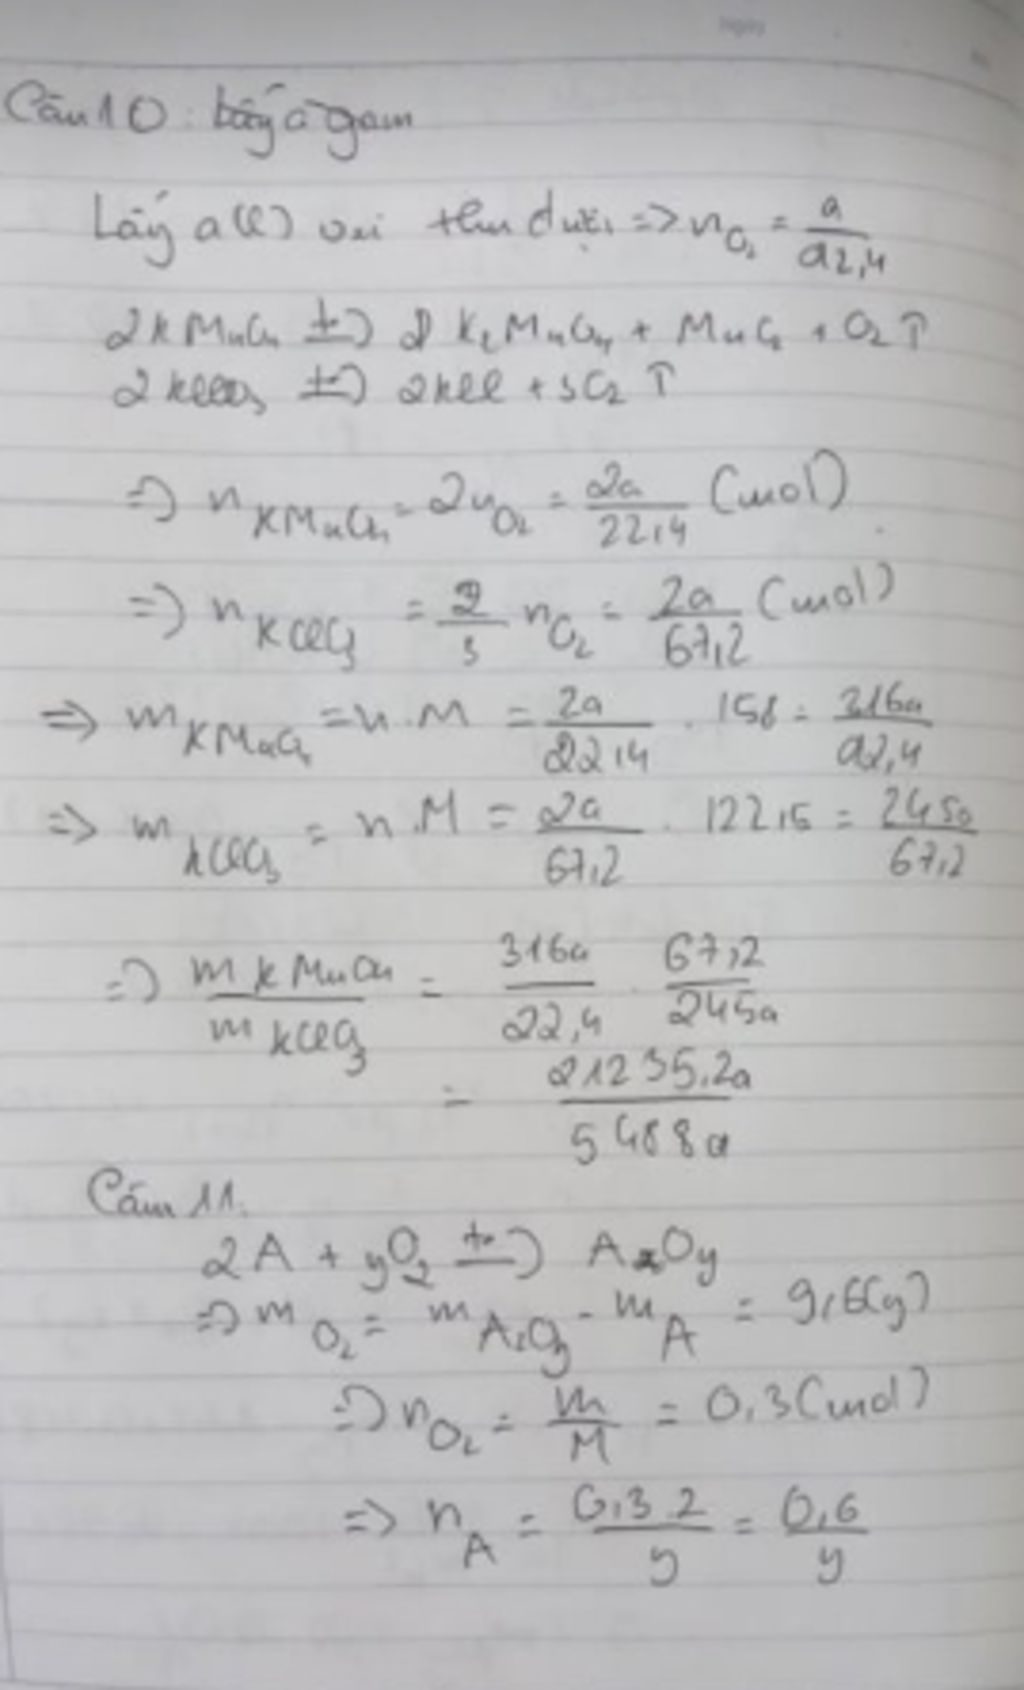 Ngày
Câu 10: Lấy a gam
Lấy a(l) oxi thu được => nO₂ = a/22,4
2KMnO₄ t°→ K₂MnO₄ + MnO₂ + O₂ ↑
2KClO₃ t°→ 2KCl + 3O₂ ↑
=> nKMnO₄ = 2nO₂ = 2a/22,4 (mol)
=> nKClO₃ = 2/3 nO₂ = 2a/67,2 (mol)
=> mKMnO₄ = n.M = 2a/22,4 . 158 = 316a/22,4
=> mKClO₃ = n.M = 2a/67,2 . 122,5 = 245a/67,2
=> mKMnO₄/mKClO₃ = 316a/22,4 . 67,2/245a
= 21235,2a/5488a
Câu 11.
2A + yO₂ t°→ A₂Oy
=> mO₂ = mA₂Oy - mA = 9,6(g)
=> nO₂ = m/M = 0,3(mol)
=> nA = 0,3 2/y = 0,6/y